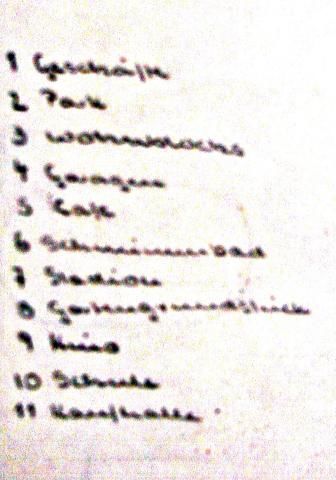 1 Geschäfte
2 Park
3 Wohnblocks
4 Garagen
5 Café
6 Schwimmbad
7 Stadion
8 Gartengrundstück
9 Kino
10 Schule
11 Kaufhalle